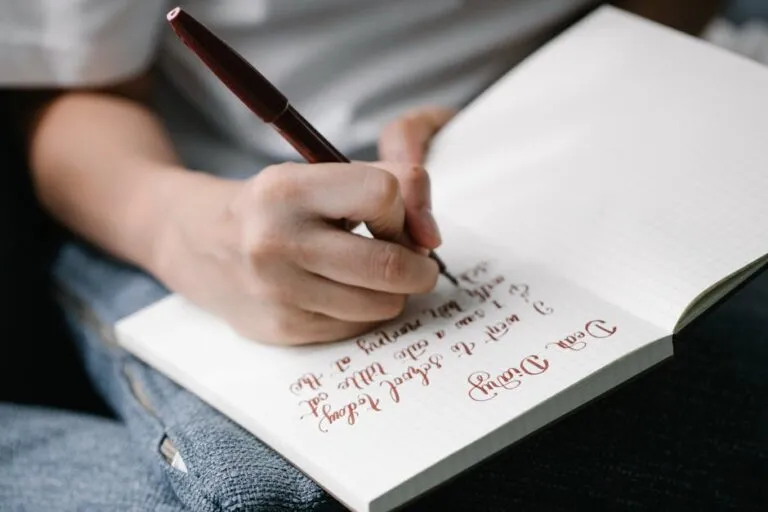 Dear Diary
I went to school today
I saw a cute little cat
at the